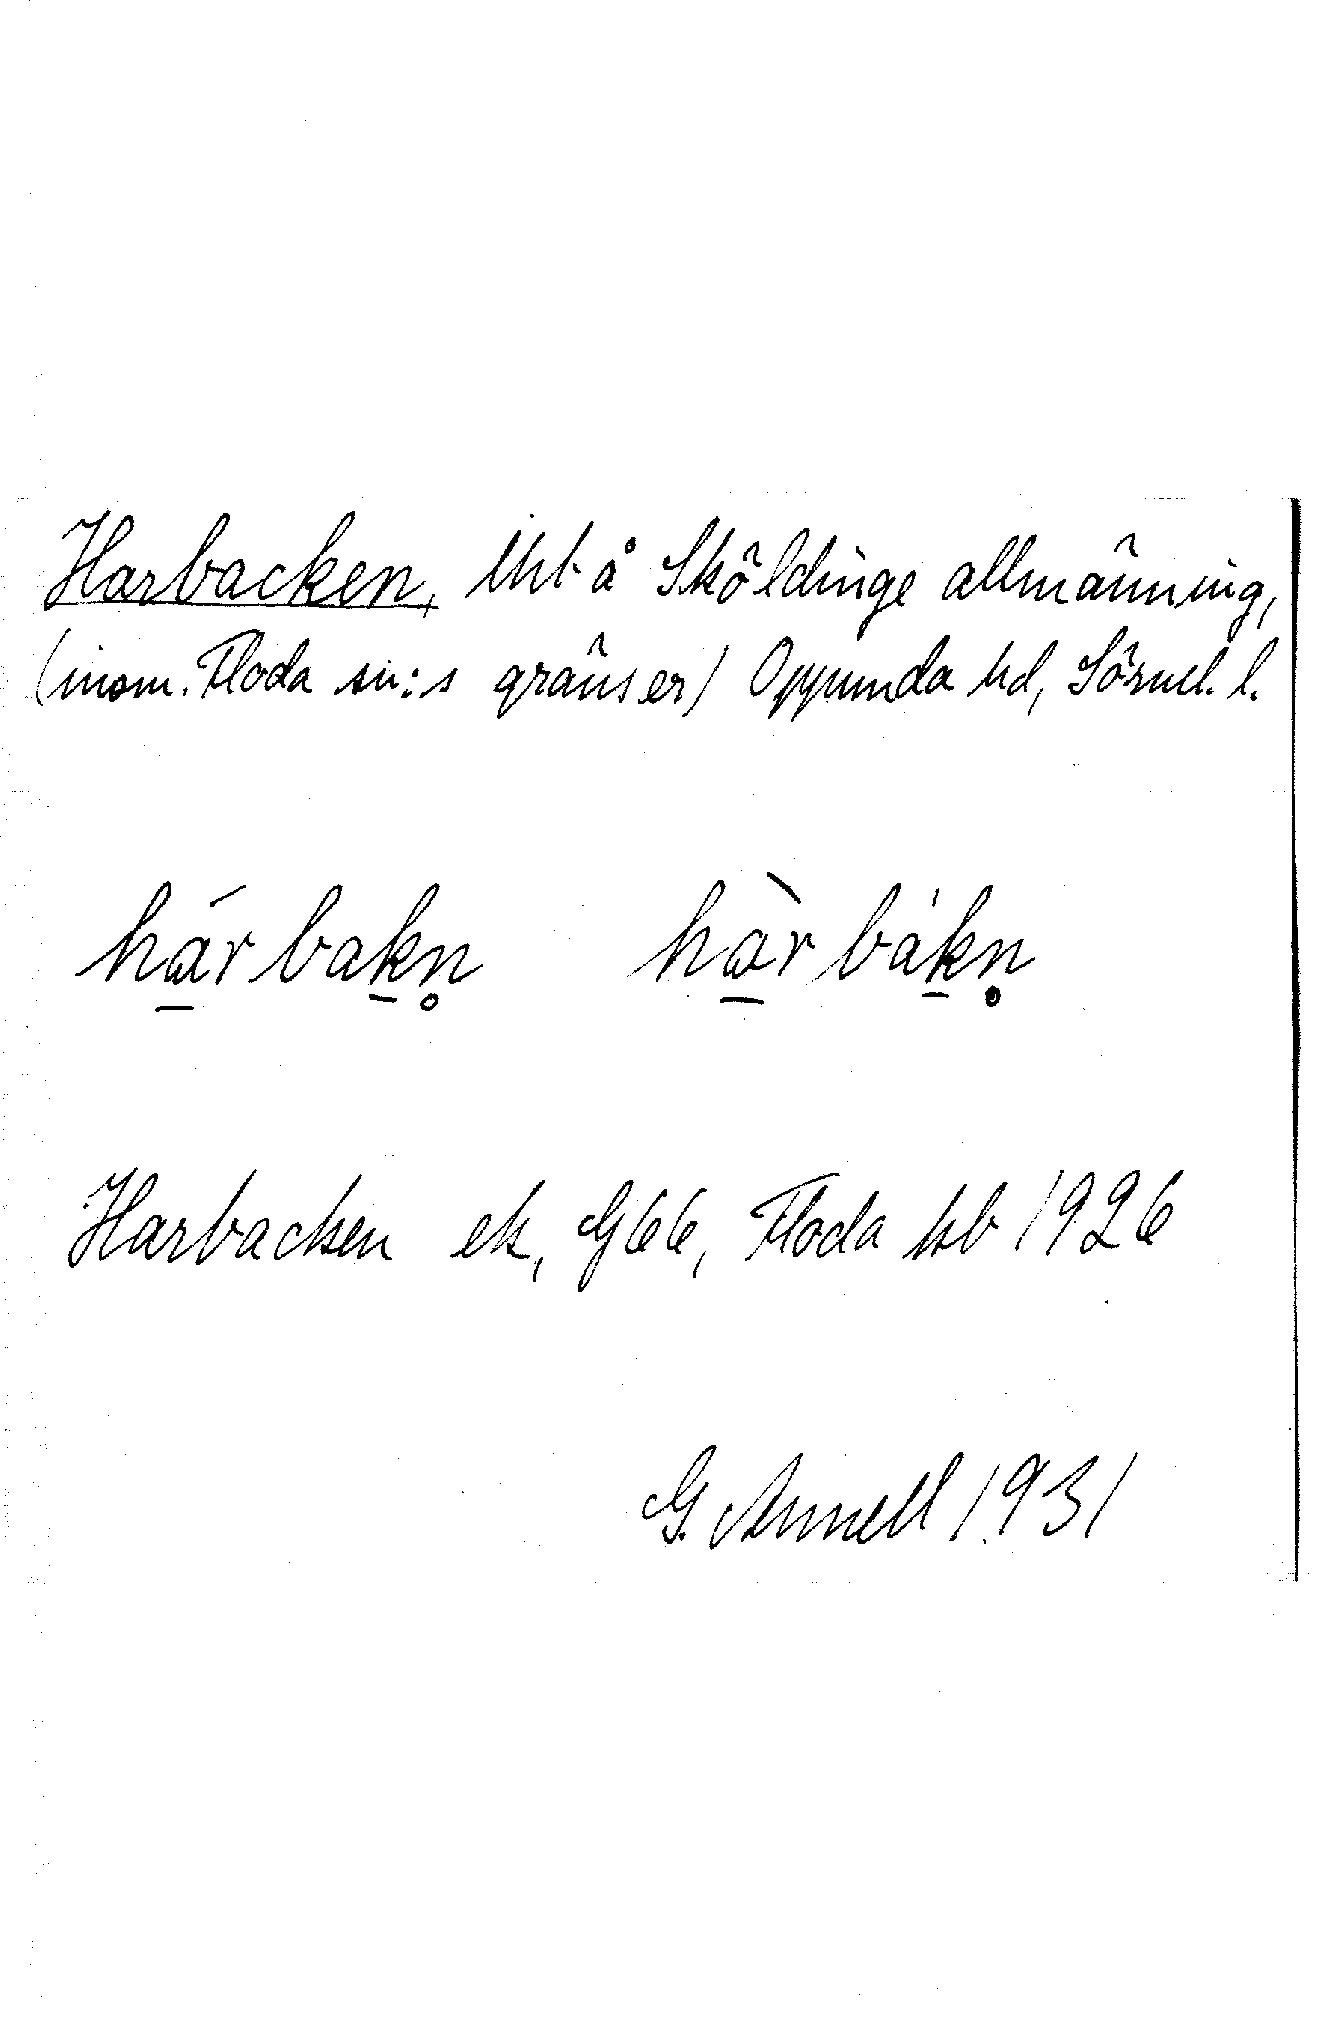 Harbacken, lht å Sköldinge allmänning,
(inom. Floda sn:s gränser) Oppunda hd, Sörml. l.
hárbakn̥ hàrbákn̥
Harbacken ek, G66, Floda kb 1926
G. Annell 1931